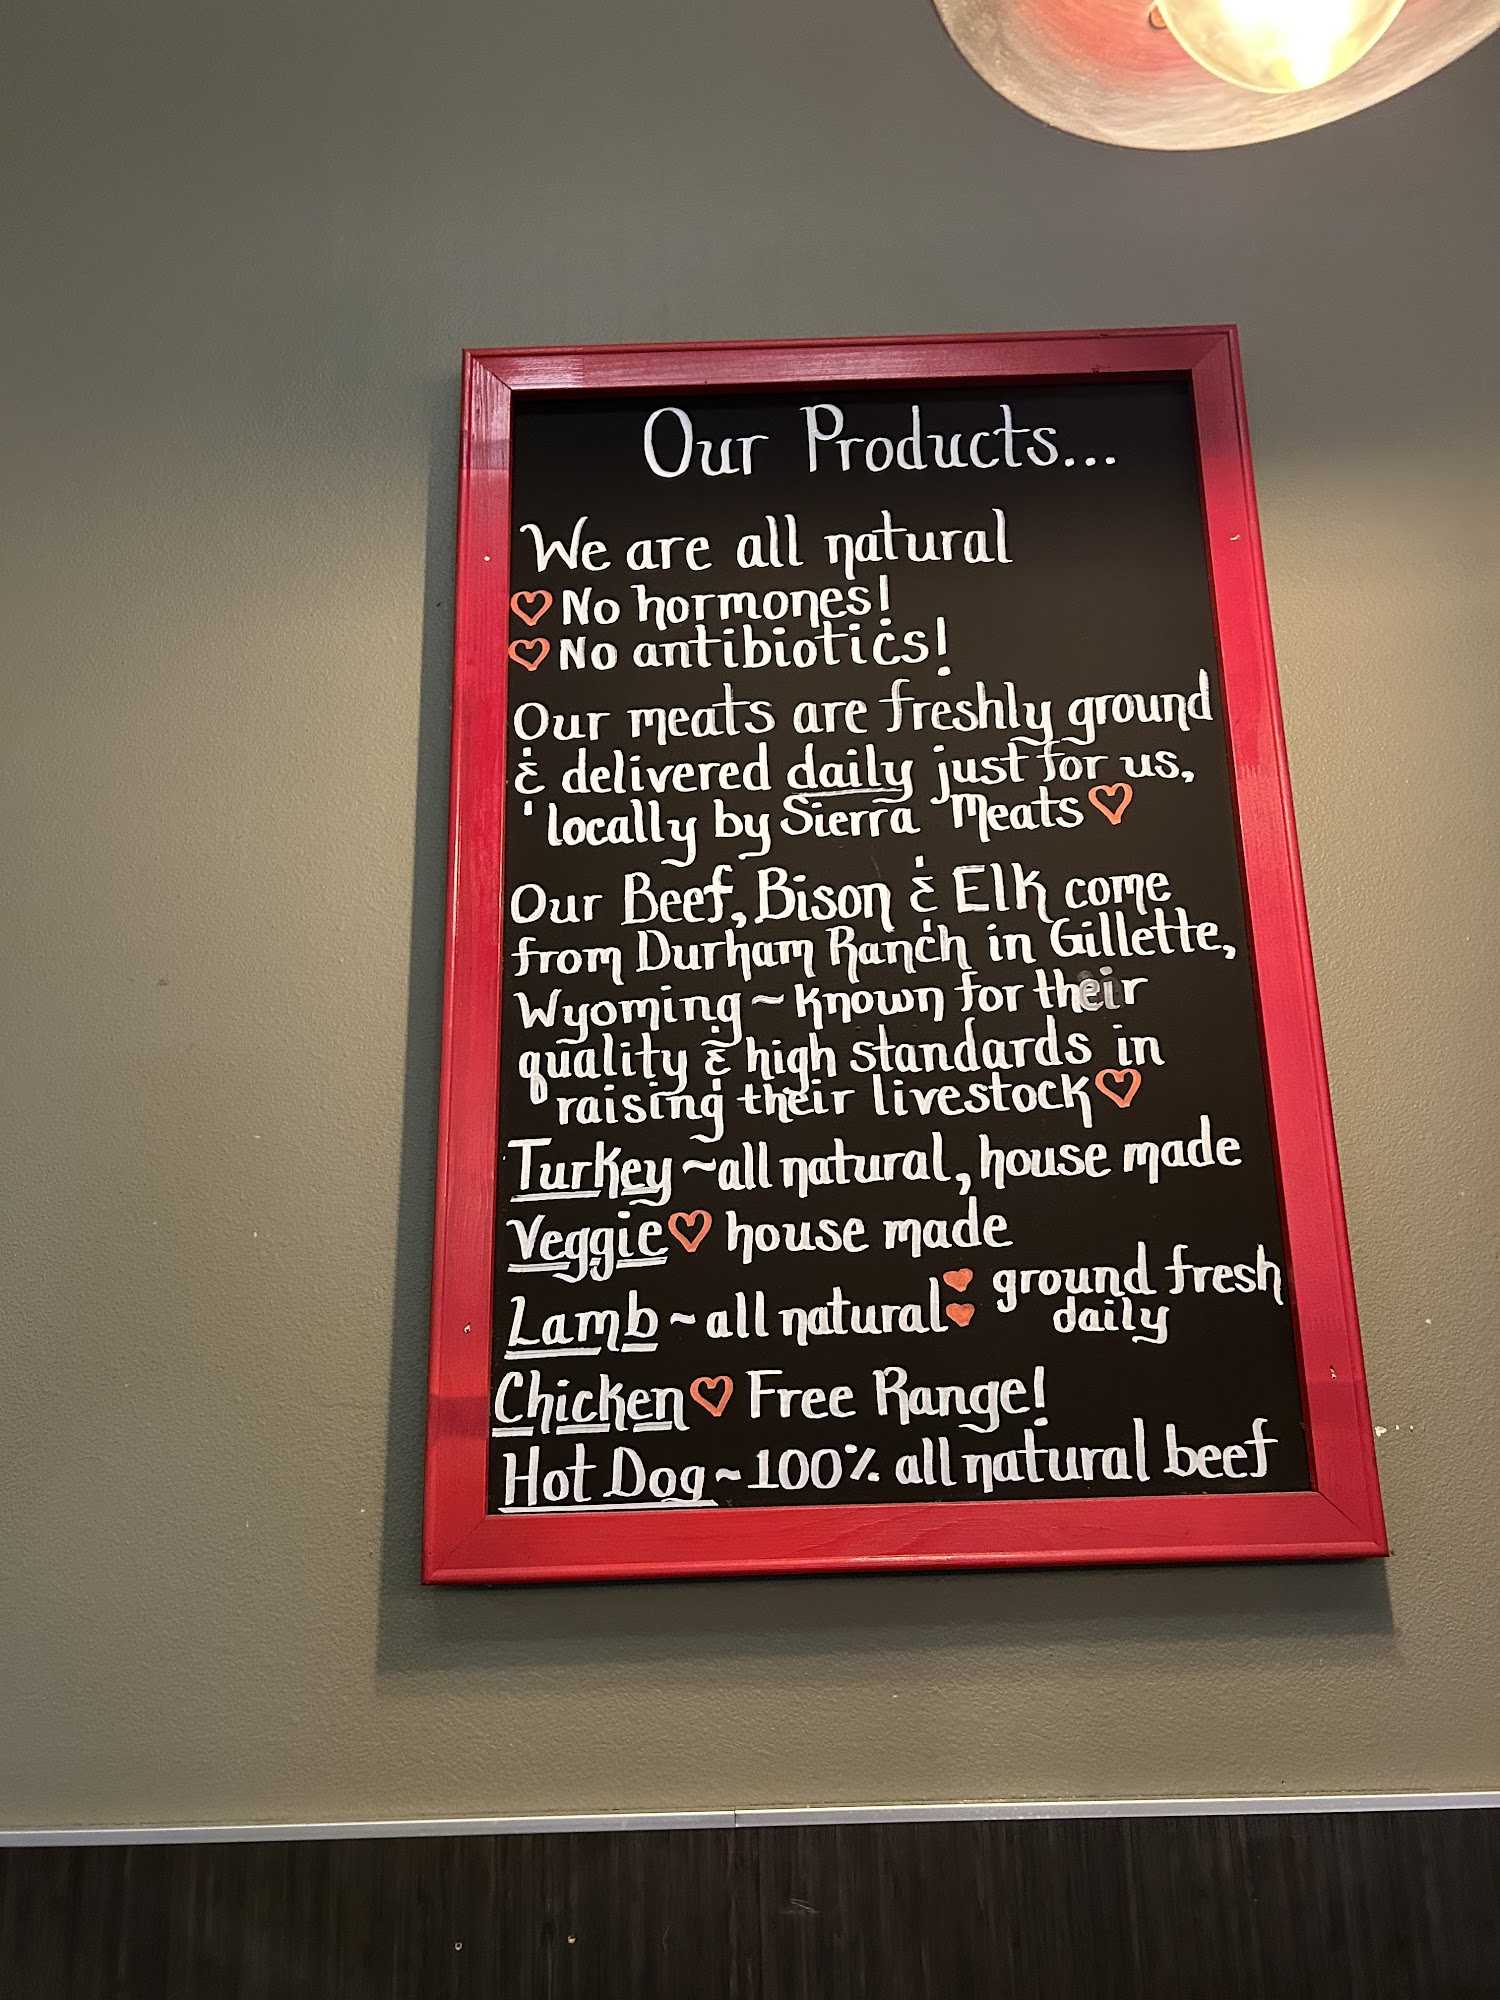 Our Products...
We are all natural
♡ No hormones!
♡ No antibiotics!
Our meats are freshly ground
& delivered daily just for us,
locally by Sierra Meats ♡
Our Beef, Bison & Elk come
from Durham Ranch in Gillette,
Wyoming ~ known for their
quality & high standards in
raising their livestock ♡
Turkey ~ all natural, house made
Veggie ♡ house made
Lamb ~ all natural ♥♥ ground fresh
daily
Chicken ♡ Free Range!
Hot Dog ~ 100% all natural beef